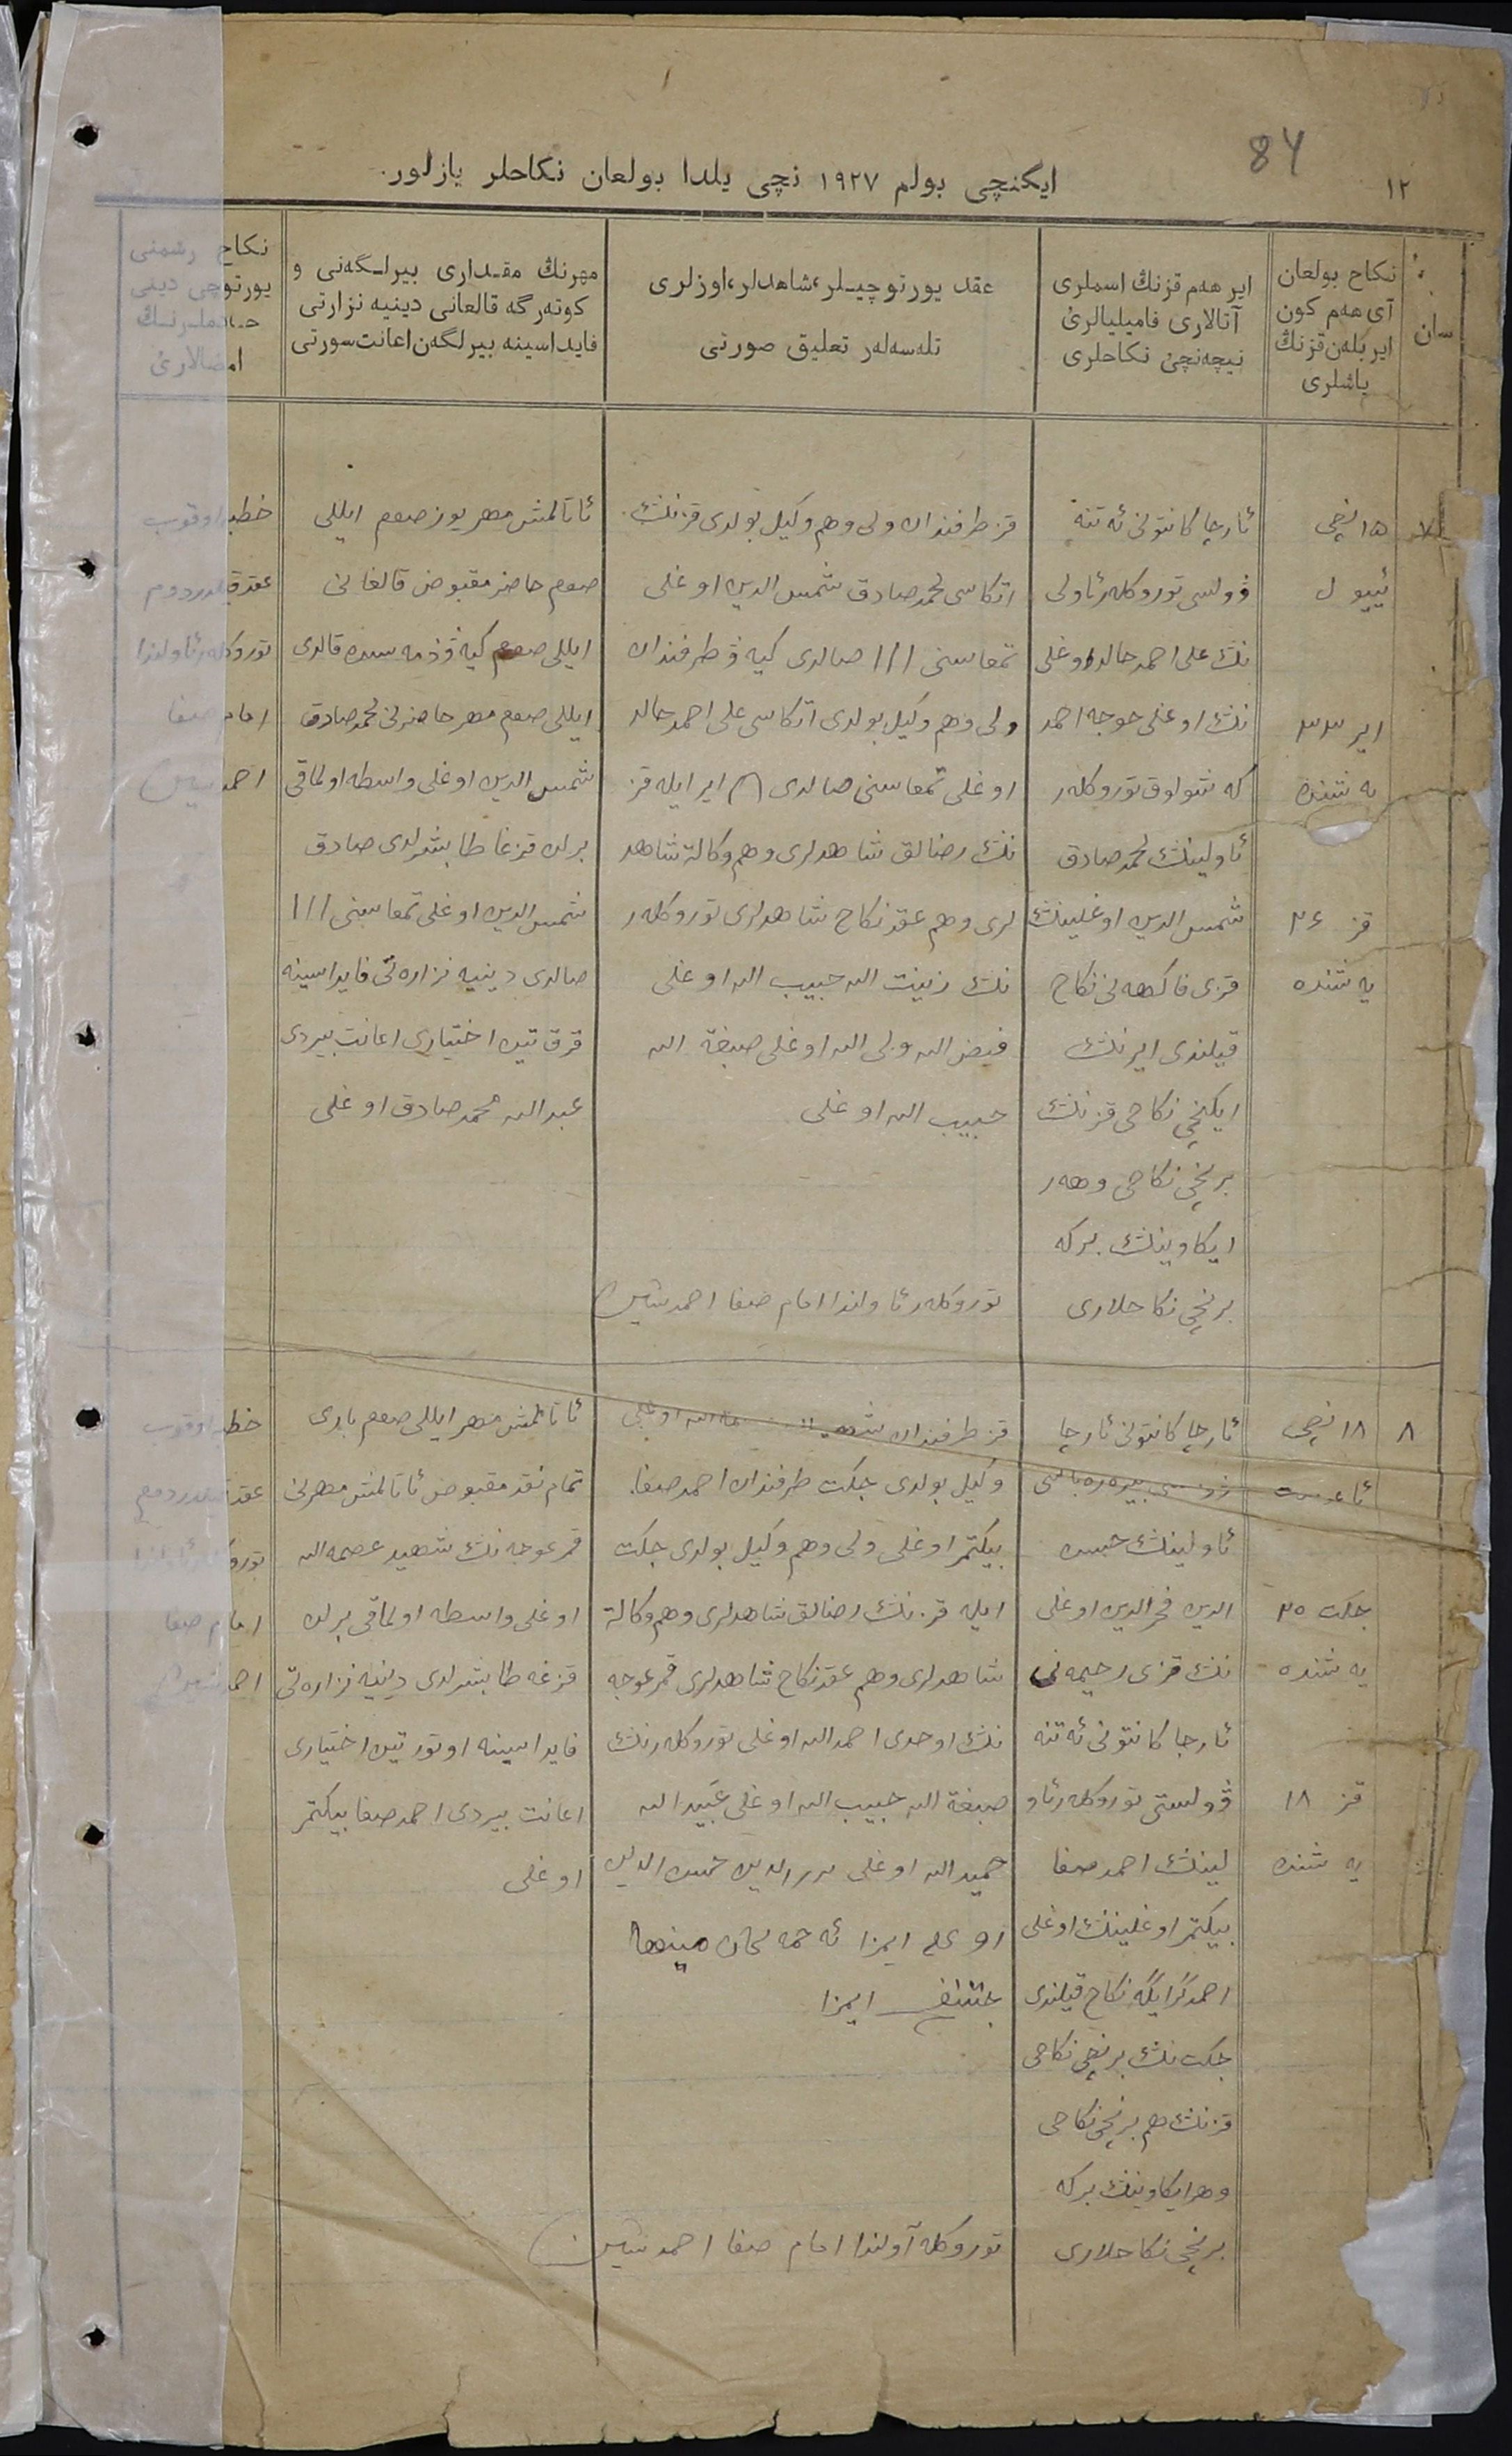 84
١٢
ايكنچی بولم ١٩٢٧ نچی يلدا بولعان نكاحلر يازلور.
سان
نكاح بولعان
آی هەم كون
ایر بلەن قزنڭ
ياشلری
ایر هەم قزنڭ اسملری
آتالاری فاميليالری
نيچەنچی نكاحلری
عقد يورتوچيـلر، شاهدلر، اوزلری
تلەسەلەر تعليق صورتی
مهرنڭ مقـداری بیرلـگەنی و
كوتەرگە قالعانی دينيە نزارتی
فايداسينە بيرلگەن اعانت سورتی
نكاح رسمنی
يورتوچی دينی
خـادملـرنـڭ
امضالاری
٧
١٥ نچی
ئييول
ایر ٣٣
يەشندە
قز ٢٤
يەشندە
ئارچا كانتونی ئەتنە
ڤولسی توروكلەر ئاولی
نڭ علی احمد خالد اوغلی
نڭ اوغلی خوجە احمد
كە شولوق توروكلەر
ئاولينڭ محمد صادق
شمس الدین اوغلينڭ
قزی فاكهەنی نكاح
قيلندی ایرنڭ
ايكنچی نكاحی قزنڭ
برنچی نكاحی وهەر
ايكاوينڭ بركە
برنچی نكاحلاری
قز طرفندان ولی وهم وكيل بولدی قزنڭ
اتكاسی محمد صادق شمس الدین اوغلی
تمغاسنی ||| صالدی كيەڤ طرفندان
ولی وهم وكيل بولدی اتكاسی علی احمد خالد
اوغلی تمغاسنی صالدی ایر ايلە قز
نڭ رضالق شاهدلری وهم وكالة شاهد
لری وهم عقد نكاح شاهدلری توروكلەر
نڭ زينت الله حبيب الله اوغلی
فيض الله ولی الله اوغلی صبغة الله
حبيب الله اوغلی
توروكلەر ئاولندا امام صفا احمد
ئاتالمش مهر يوز صوم ايللی
صوم حاضر مقبوض قالغانی
ايللی صوم كيەڤ ذمەسندە قالدی
ايللی صوم مهر حاضرنی محمد صادق
شمس الدین اوغلی واسطە اولماقی
برلە قزغا طابشرلدی صادق
شمس الدین اوغلی تمغاسنی |||
صالدی دينيە نزارەتی فايداسينە
قرق تين اختياری اعانت بيردی
عبد الله محمد صادق اوغلی
خطبە اوقوب
عقد قيلدردوم
توروكلەر ئاولندا
امام صفا
احمد
٨
١٨ نچی
جكت ٢٥
يەشندە
قز ١٨
يەشندە
ئارچا كانتونی ئارچا
ئاولينڭ حسن
الدین فخر الدین اوغلی
نڭ قزی رحيمەنی
ئارچا كانتونی ئەتنە
ڤولستی توروكلەر ئاو
لينڭ احمد صفا
بيكتمر اوغلينڭ اوغلی
احمد گرایگە نكاح قيلندی
جكت نڭ برنچی نكاحی
قزنڭ هم برنچی نكاحی
وهر ايكاوينڭ بركە
برنچی نكاحلاری
قز طرفندان
وكيل بولدی جكت طرفندان احمد صفا
بيكتمر اوغلی ولی وهم وكيل بولدی جكت
ايلە قزنڭ رضالق شاهدلری وهم وكالة
شاهدلری وهم عقد نكاح شاهدلری قمر عوجە
نڭ اوحدی احمد الله اوغلی توروكلەرنڭ
صبغة الله حبيب الله اوغلی عبيد الله
حميد الله اوغلی بدر الدین شمس الدین
اوغلی ايمزا
ايمزا
توروكلە آولندا امام صفا احمد
ئاتالمش مهر ايللی صوم باری
تمام نقد مقبوض ئاتالمش مهرنی
قمر عوجەنڭ شهيد عصمە الله
اوغلی واسطە اولماقی برلە
قزغە طابشرلدی دينيە نزارەتی
فايداسينە اوتوز تين اختياری
اعانت بيردی احمد صفا بيكتمر
اوغلی
خطبە اوقوب
عقد قيلدردوم
امام صفا
احمد